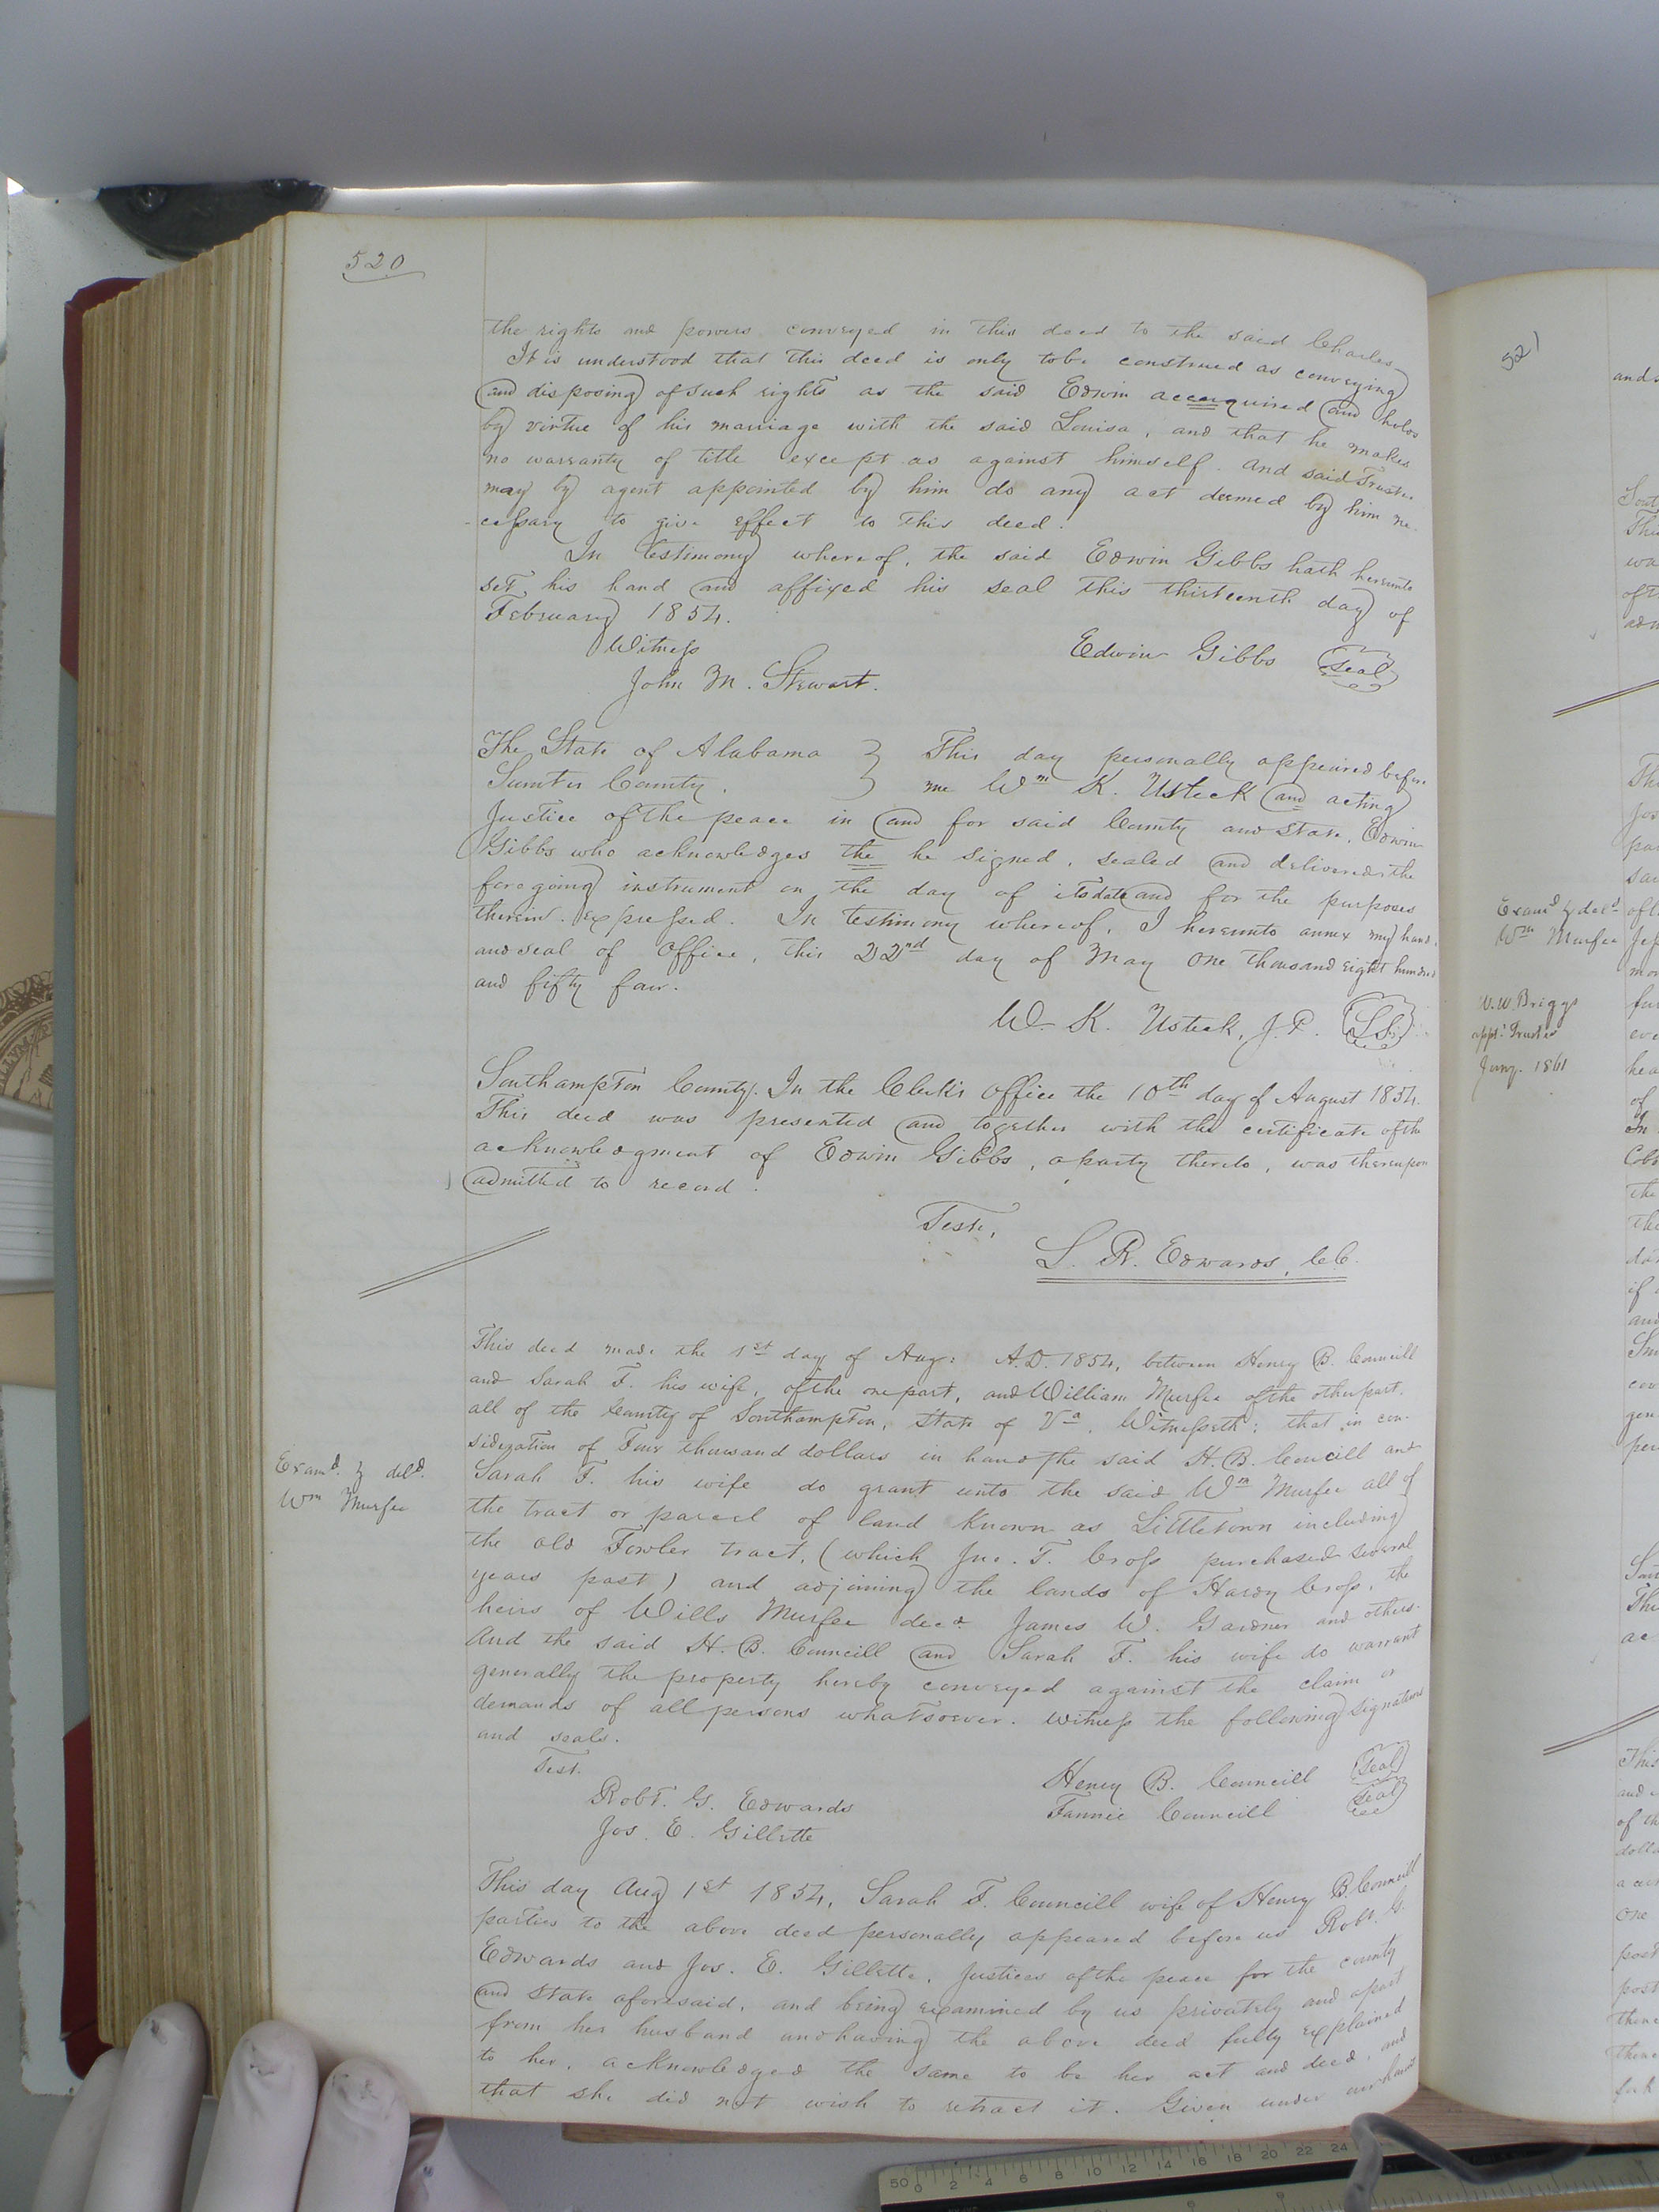 520
the rights and powers conveyed in this deed to the said Charles
It is understood that this deed is only to be construed as conveying
and disposing of such rights as the said Edwin accacquired and holds
by virtue of his marriage with the said Louisa, and that he makes
no warranty of title except as against himself. And said Trustee
may by agent appointed by him do any act deemed by him ne-
-cessary to give effect to this deed.
In testimony whereof, the said Edwin Gibbs hath hereunto
set his hand and affixed his seal this thirteenth day of
February 1854.
Witness
Edwin Gibbs Seal
John M. Stewart.
The State of Alabama } This day personally appeared before
Sumter County. } me Wm K. Ustick and acting
Justice of the peace in and for said County and State, Edwin
Gibbs who acknowledges the he signed, sealed and delivered the
foregoing instrument on the day of its date and for the purposes
therein expressed. In testimony whereof, I hereunto annex my hand
and seal of Office, this 22nd day of May One thousand eight hundred
and fifty four.
W. K. Ustick, J. P. L.S.
Southampton County. In the Clerk's Office the 10th day of August 1854.
This deed was presented and together with the certificate of the
acknowledgment of Edwin Gibbs, a party thereto, was thereupon
admitted to record.
Teste,
L. R. Edwards, C.C.
This deed made the 1st day of Aug: A.D. 1854, between Henry B. Councill
and Sarah F. his wife, of the one part, and William Murfee of the other part.
all of the County of Southampton, State of Va. Witnesseth: that in con-
sideration of Four thousand dollars in hand the said H. B. Councill and
Sarah F. his wife do grant unto the said Wm Murfee all of
the tract or parcel of land known as Littletown including
the old Fowler tract, (which Jno. T. Cross purchased several
years past) and adjoining the lands of Hardy Cross, the
heirs of Wills Murfee decd. James W. Gardner and others.
And the said H. B. Councill and Sarah F. his wife do warrant
generally the property hereby conveyed against the claim or
demands of all persons whatsoever. Witness the following signatures
and seals.
Test.
Henry B. Councill Seal
Robt. G. Edwards
Fannie Councill Seal
Jos. E. Gillette
This day Aug 1st 1854, Sarah F. Councill wife of Henry B. Councill
parties to the above deed personally appeared before us Robt. G.
Edwards and Jos. E. Gillette, Justices of the peace for the county
and State aforesaid, and being examined by us privately and apart
from her husband and having the above deed fully explained
to her, acknowledged the same to be her act and deed, and
that she did not wish to retract it. Given under our hands
Examd. & deld.
Wm Murfee
521
Examd & deld
Wm Murfee
W. W. Briggs
appt. Trustee
Jany. 1861
50 0 2 4 6 8 10 12 14 16 18 20 22 24